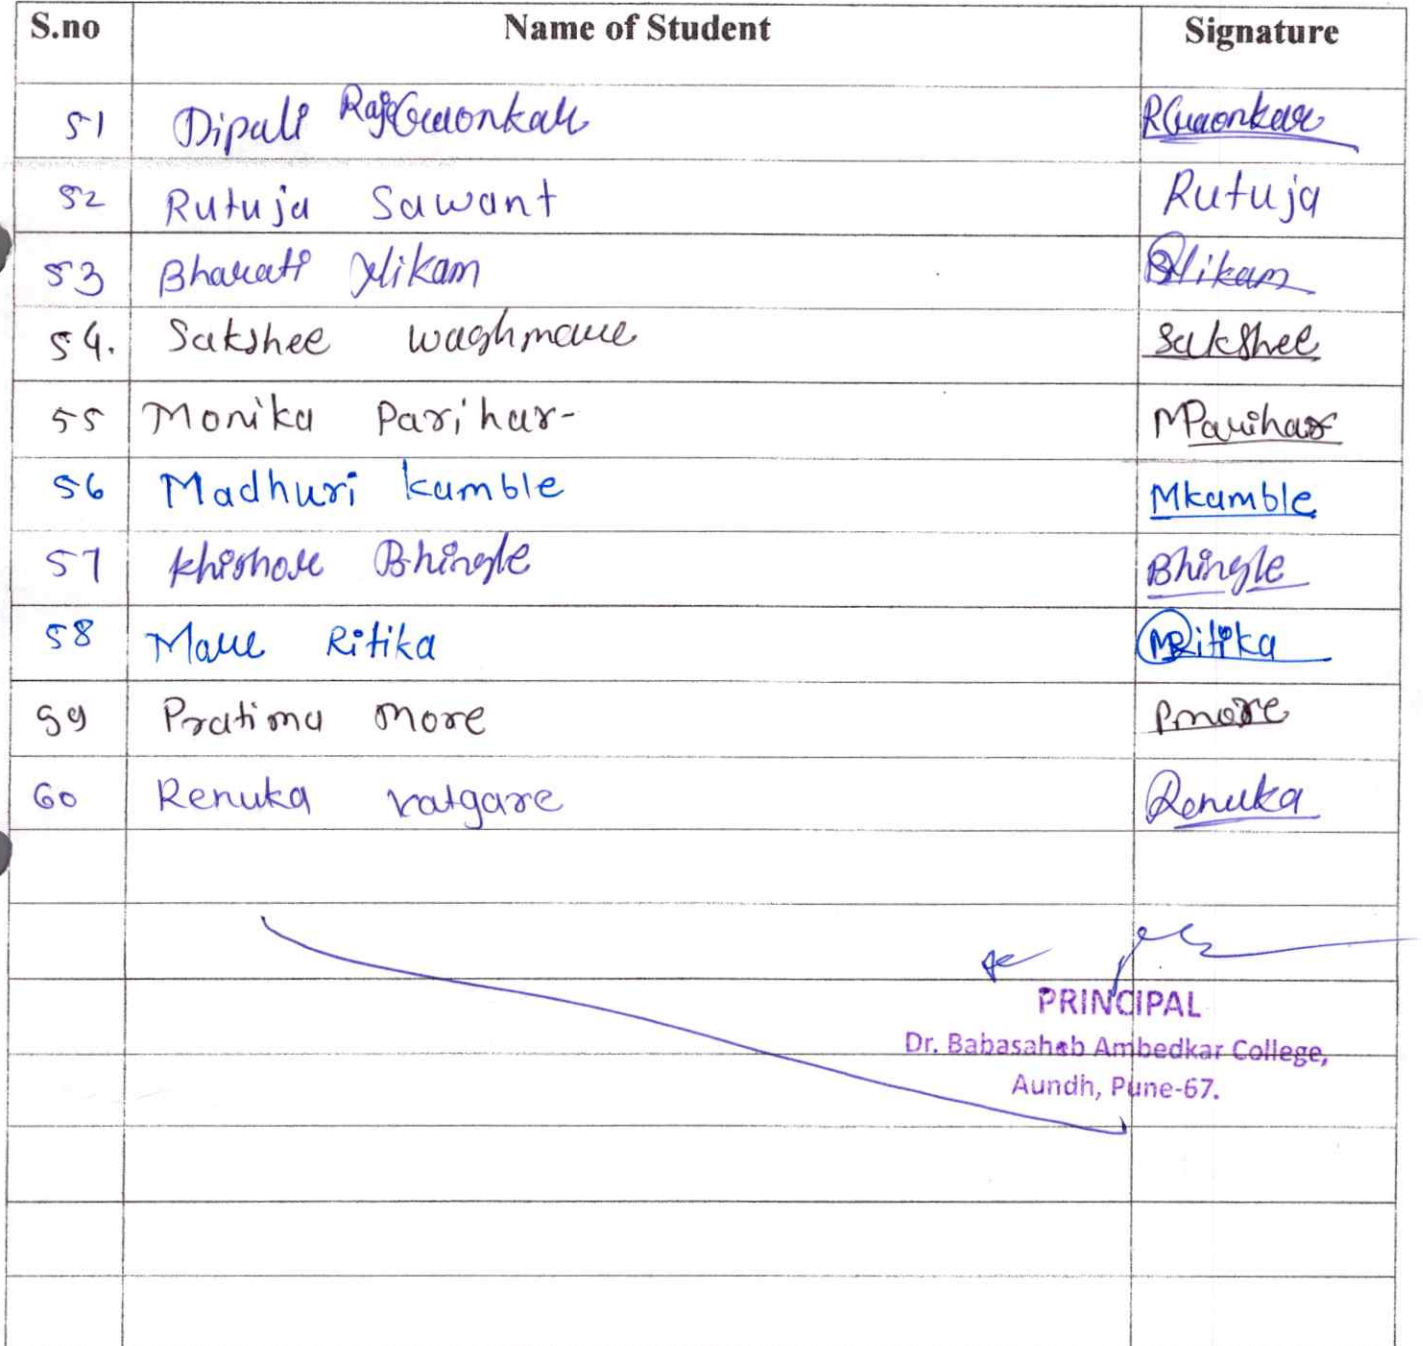 S.no Name of Student Signature
51 Dipali RajGaonkar RGaonkar
52 Rutuja Sawant Rutuja
53 Bharati Nikam BNikam
54. Sakshee Waghmare Sakshee
55 Monika Parihar- MParihar
56 Madhuri Kamble Mkamble
57 Khishore Bhingle Bhingle
58 More Ritika MRitika
59 Pratima more Pmore
60 Renuka Renuka
PRINCIPAL
Dr. Babasaheb Ambedkar College,
Aundh, Pune-67.